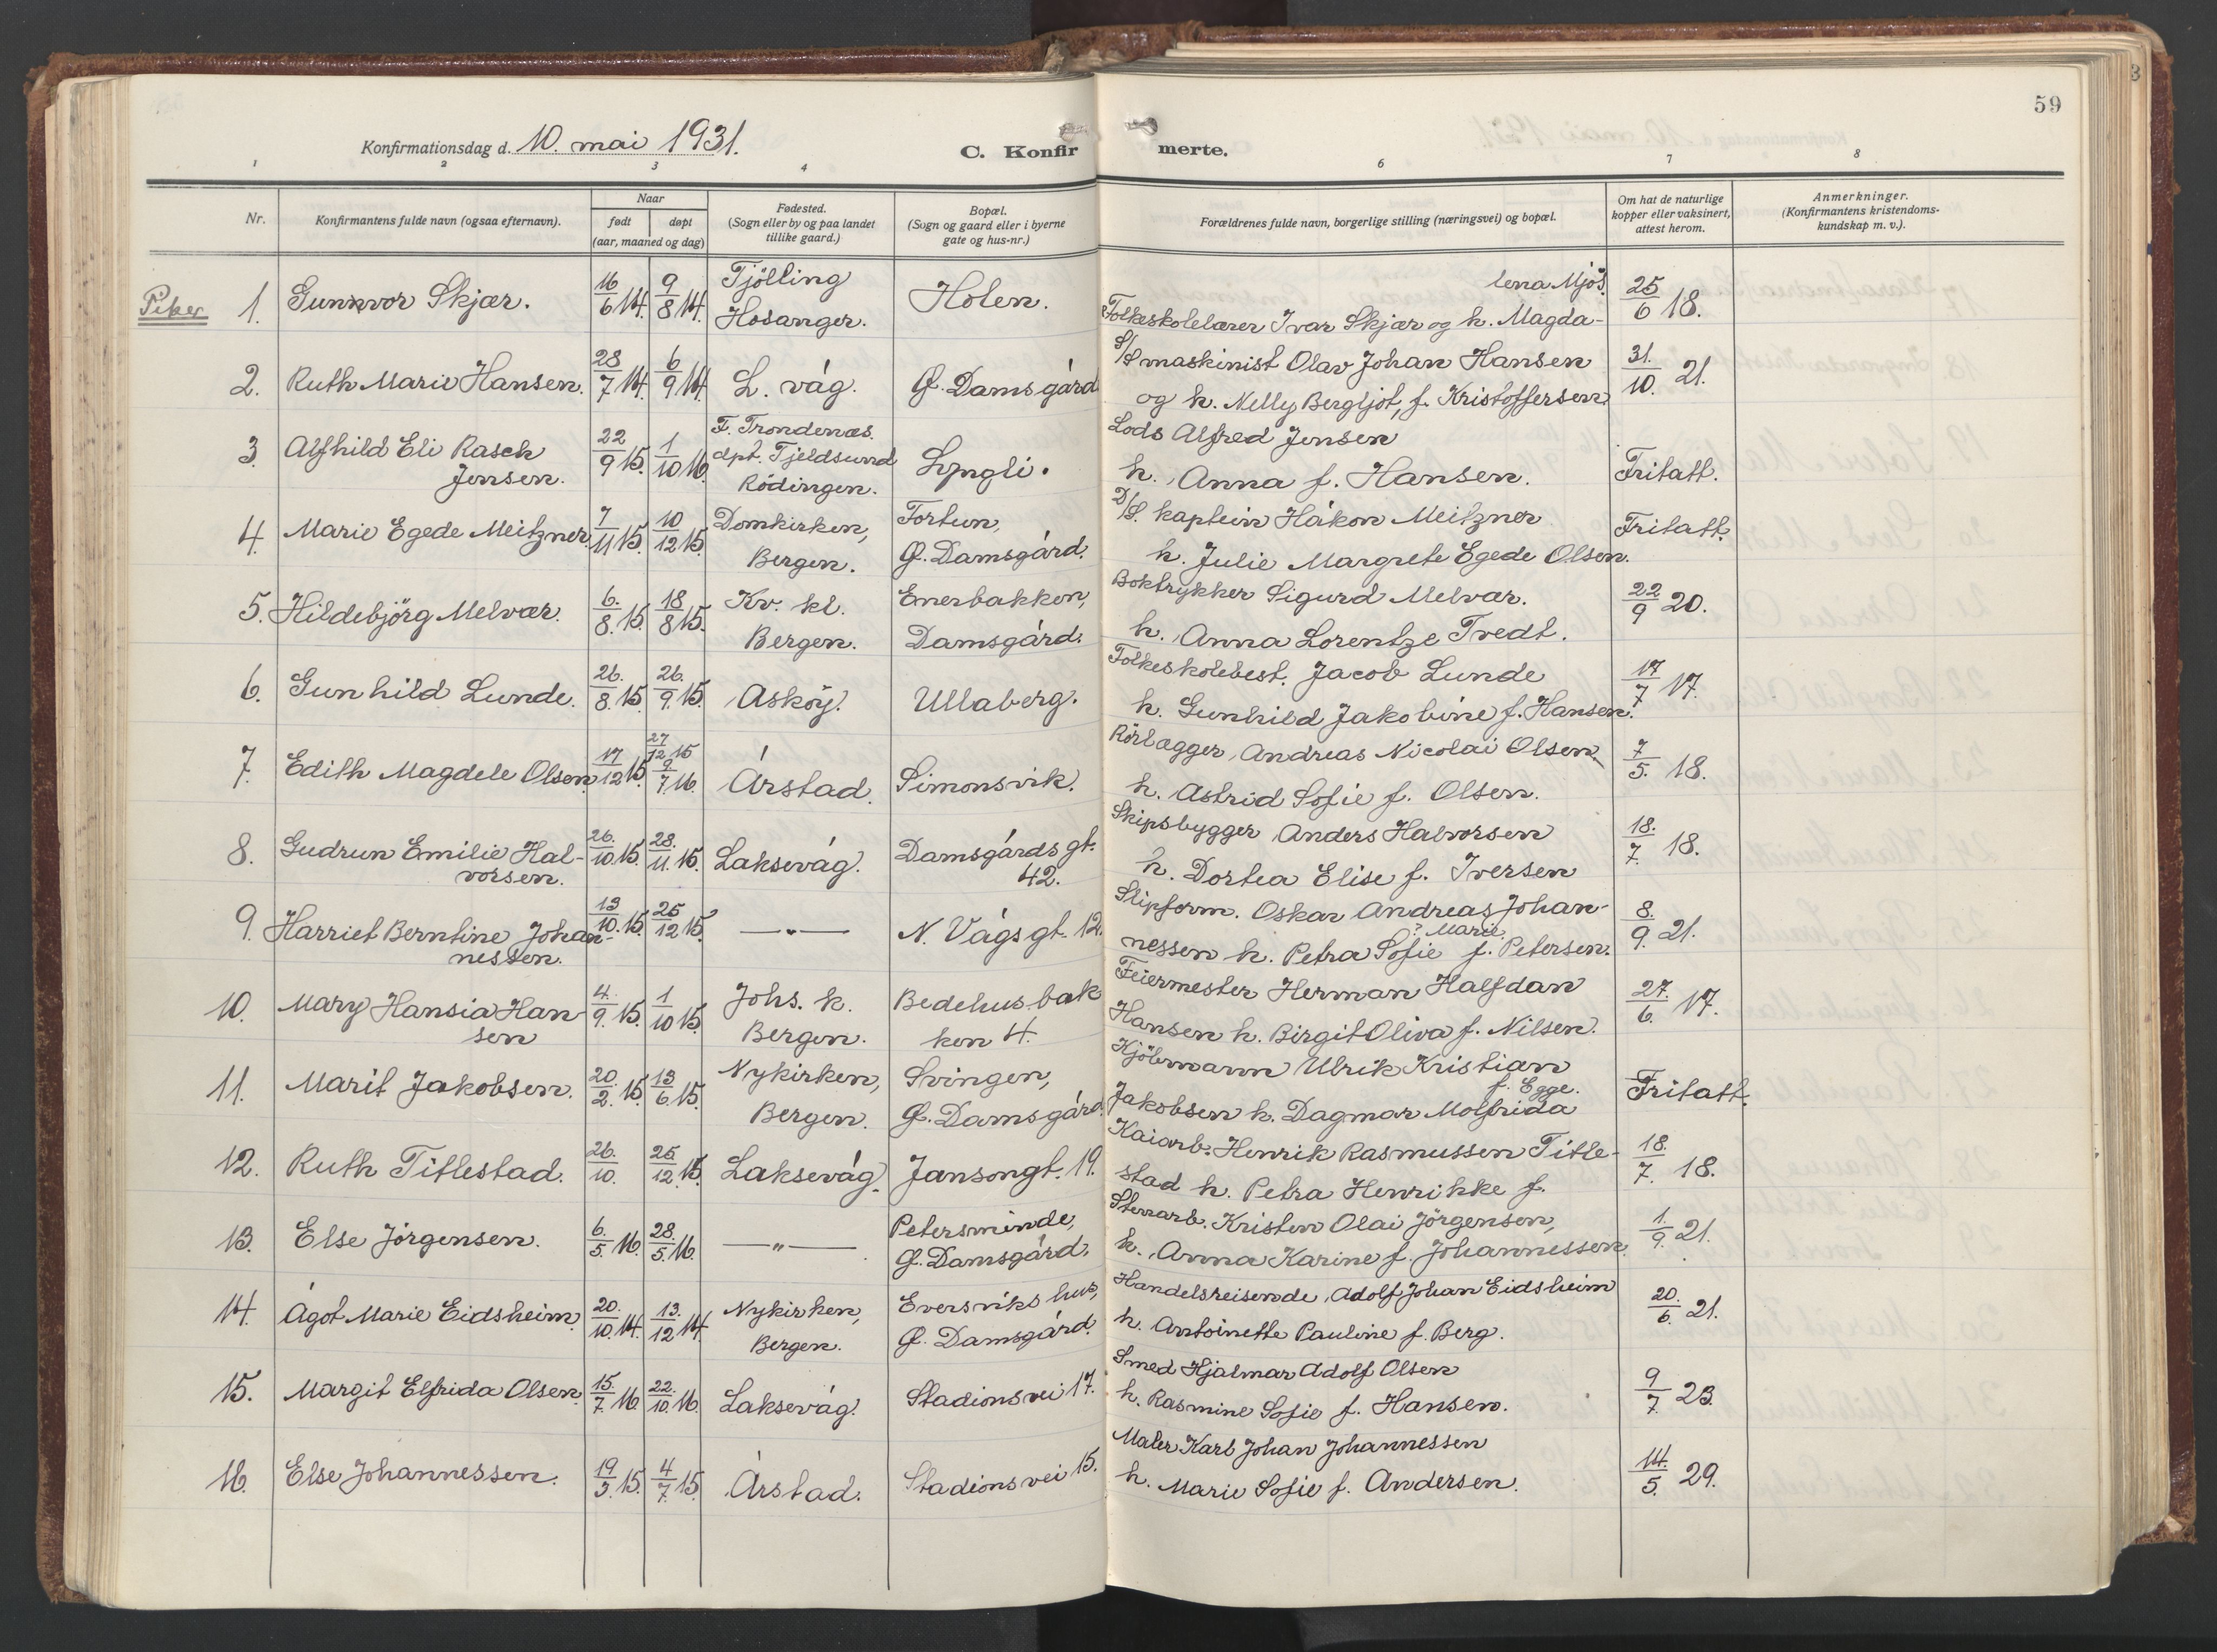 59
Konfirmationsdag d. 10. mai 1931.
C. Konfirmerte.
1 2 3 4 5 6 7 8
Nr.
Konfirmantens fulde navn (ogsaa efternavn).
Naar
født døpt
(aar, maaned og dag)
Fødested.
(Sogn eller by og paa landet
tillike gaard.)
Bopæl.
(Sogn og gaard eller i byerne
gate og hus-nr.)
Forældrenes fulde navn, borgerlige stilling (næringsvei) og bopæl.
Om hat de naturlige
kopper eller vaksinert,
attest herom.
Anmerkninger.
(Konfirmantens kristendoms-
kundskap m. v.).
Piker
1. Gunnvor Skjær. 16/6 14. 9/8 14. Tjölling
Hosanger. Holen.
lena Mjös.
Folkeskolelærer Ivar Skjær og h. Magda- 25/6 18.
2. Ruth Marie Hansen. 28/7 14. 6/9 14. L. våg. G. Damsgård
S/S maskinist Olav Johan Hansen
og h. Nelly Bergljot, f. Kristoffersen. 31./10. 21.
3. Alfhild Eli Rasch
Jensen. 22/9 15. 1/10 16. F. Trondenæs.
dpt. Tjeldsund
Rödingen. Lyngli.
Lods Alfred Jensen
h. Anna f. Hansen. Fritatt.
4. Marie Egede Meitzner. 7/11 15. 10/12 15. Domkirken,
Bergen. Fortun,
G. Damsgård.
D/S. kaptein Håkon Meitzner
h. Julie Margrete Egede Olsen. Fritatt.
5. Hildebjörg Melvær. 6./8. 15. 18/8 15. Kv. kl.
Bergen. Enerbakken,
Damsgård.
Boktrykker Sigurd Melvær.
h. Anna Lorentze Tvedt. 22/9 20.
6. Gunhild Lunde. 26./8. 15. 26./9. 15. Asköy. Ullaberg.
Folkeskolebest. Jacob Lunde
h. Gunhild Jakobine f. Hansen. 17/7 17.
7. Edith Magdele Olsen. 17/12 15. 27/12 15
9/7 16. Årstad. Simonsvik.
Rörlægger, Andreas Nicolai Olsen.
h. Astrid Sofie f. Olsen. 7/5. 18.
8. Gudrun Emilie Hal-
vorsen. 26./10. 15. 28./11. 15. Laksevåg. Damsgårdsgt.
42.
Skipsbygger Anders Halvorsen
h. Dortea Elise f. Iversen 18./7. 18.
9. Harriet Berntine Johan-
nessen. 13/10. 15. 25/12 15. —"— N. Vågsgt. 12.
Slipform. Oskar Andreas Johan-
? Marie.
nessen h. Petra Sofie f. Petersen. 8./9. 21.
10. Mary Hansia Han-
sen 4./9. 15. 1/10 15. Johs. k.
Bergen. Bedehusbak
ken 4.
Feiermester Herman Halfdan
Hansen h. Birgit Oliva f. Nilsen. 27./6. 17.
11. Marit Jakobsen. 20./2. 15. 13/6. 15. Nykirken,
Bergen. Svingen,
G. Damsgård.
Kjölemann Ulrik Kristian
f. Egge.
Jakobsen h. Dagmar Molfrida Fritatt.
12. Ruth Titlestad. 26./10. 25/12 15. Laksevåg. Jansongt. 19.
Kaiarb. Henrik Rasmussen Title-
stad h. Petra Henrikke f. 18./7. 18.
13. Else Jörgensen. 6./5. 16. 28./5. 16. —"— Petersminde,
G. Damsgård.
Kristen Olai Jörgensen,
h. Anna Karine f. Johannessen. 1./9. 21.
14. Ågot Marie Eidsheim. 20./10. 14. 13./12 14. Nykirken,
Bergen. Eversviks hus,
G. Damsgård.
Handelsreisende Adolf Johan Eidsheim
h. Antoinette Pauline f. Berg. 20./6. 21.
15. Margit Elfrida Olsen. 15./7. 16. 22./10. 16. Laksevåg. Stadionsvei 17.
Smed Hjalmar Adolf Olsen
h. Rasmine Sofie f. Hansen. 9/7. 23.
16. Else Johannessen. 19/3. 15. 4/7. 15. Årstad. Stadionsvei 15.
Maler Karl Johan Johannessen
h. Marie Sofie f. Andersen. 14./5. 29.